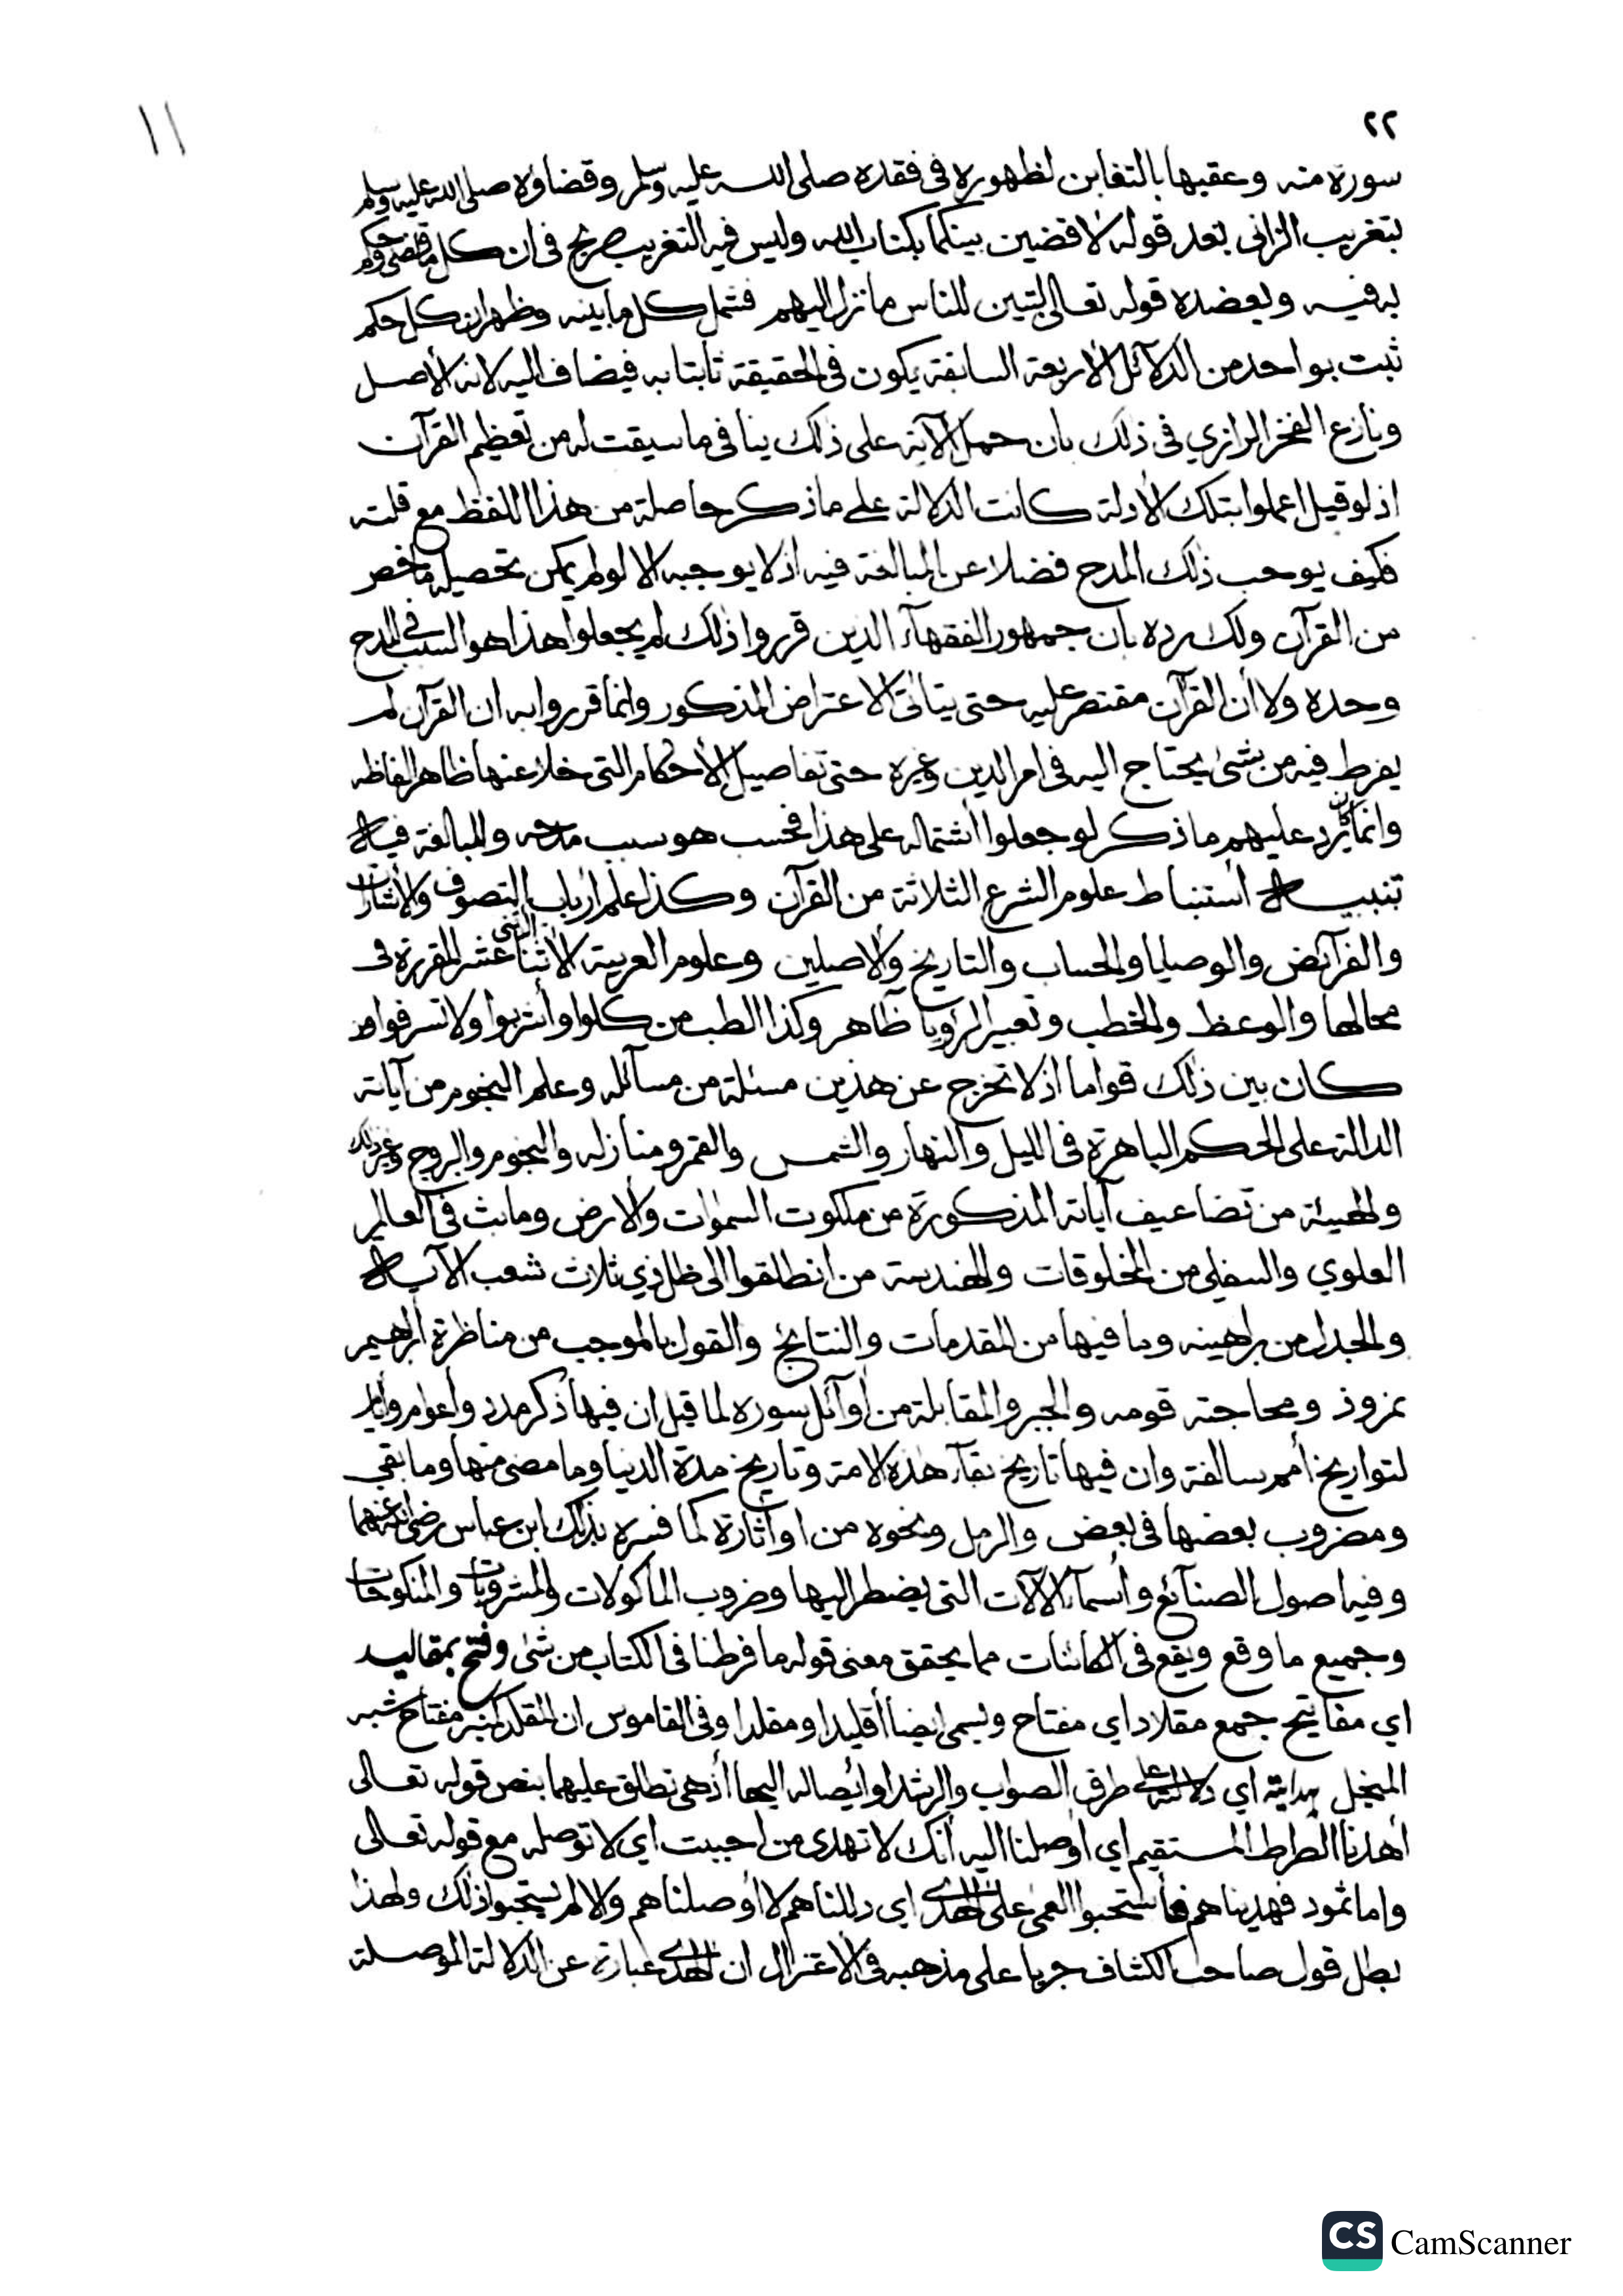 ٢٢
١١
سورة منه وعقبها بالتغابن لظهوره في فقده صلى الله عليه وسلم وقضاؤه صلى الله عليه وسلم
بتغريب الزاني بعد قوله لاقضين بينكما بكتاب الله وليس فيه التغريب صريح في ان كل ما قضى وحكم
به فيه ويعضده قوله تعالى لتبين للناس ما نزل اليهم فشمل كل ما بينه وظهر ان كل حكم
ثبت بواحد من الدلآئل الأربعة السابقة يكون في الحقيقة ثابتا به فيضاف اليه لانه الأصل
ونازع الفخر الرازي في ذلك بان حمل الآية على ذلك ينافي ما سيقت له من تعظيم القرآن
اذ لو قيل اعملوا بتلك الأدلة كانت الدلالة على ما ذكر حاصلة من هذا اللفظ مع قلته
فكيف يوجب ذلك المدح فضلا عن المبالغة فيه اذ لا يوجبه الا لو لم يمكن تحصيله باخصر
من القرآن ولك رده بان جمهور الفقهآء الذين قرروا ذلك لم يجعلوا هذا هو السبب في المدح
وحده ولا أن القرآن مقتصر عليه حتى يتاتى الاعتراض المذكور وانما قرروا به ان القرآن لم
يفرط فيه من شئ يحتاج اليه في امر الدين وغيره حتى تفاصيل الأحكام التي خلا عنها ظاهر الفاظه
وانما كان يرد عليهم ما ذكر لو جعلوا اشتماله على هذا فحسب هو سبب مدحه والمبالغة فيه اه
تنبيه اه أستنباط علوم الشرع الثلاثة من القرآن وكذا علم ارباب التصوف والأشارات
والفرآئض والوصايا والحساب والتاريخ والاصلين وعلوم العربية الأثنا الثنى عشر المقررة في
محالها والوعظ والخطب وتعبير الرؤيا ظاهر وكذا الطب من كلوا وأشربوا ولا تسرفوا ومن
كان بين ذلك قواما اذ لا تخرج عن هذين مسئلة من مسآئله وعلم النجوم من آياته
الدالة على الحكم الباهرة في الليل والنهار والشمس والقمر ومنازله والنجوم والبروج وغير ذلك
والهيئة من تضاعيف آياته المذكورة من ملكوت السمٰوات والأرض وما بث في العالم
العلوي والسفلي من المخلوقات والهندسة من انطلقوا الى ظل ذي ثلاث شعب الآية اه
والجدل من براهينه وما فيها من المقدمات والنتائج والقول بالموجب من مناظرة أبرهيم
نمروذ ومحاجته قومه والجبر والمقابلة من أوآئل سوره لما قيل ان فيها ذكر مدد وأعوام وأيام
لتواريخ أمم سالفة وان فيها تاريخ بقآء هذه الامة وتاريخ مدة الدنيا وما مضى منها وما بقي
ومضروب بعضها في بعض والرمل ونحوه من او أثارة كما فسره بذلك ابن عباس رضى الله عنهما
وفيه اصول الصنآئع وأسمآء الآلات التي يضطر اليها وضروب المأكولات والمشروبات والمنكوحات
وجميع ما وقع ويقع في الكائنات مما يحقق معنى قوله ما فرطنا في الكتاب من شئ وفتح بمقاليد
اي مفاتيح جمع مقلاد اي مفتاح ويسمى ايضا أقليدا ومقلدا وفي القاموس ان المقلد كمنبر مفتاح شبه
المنجل بهدايته اي دلالته على طرق الصواب والرشد او أيصاله اليها أذ هي تطلق عليهما بنص قوله تعالى
أهدنا الصراط المستقيم اي اوصلنا اليه أنك لا تهدى من احببت اي لا توصله مع قوله تعالى
واما ثمود فهديناهم فأستحبوا العمى على الهدى اي دللناهم لا أوصلناهم والا لم يستحبوا ذلك ولهذا
بطل قول صاحب الكشاف جريا على مذهبه في الأعتزال ان الهدى عبارة عن الدلالة الموصلة
CS CamScanner